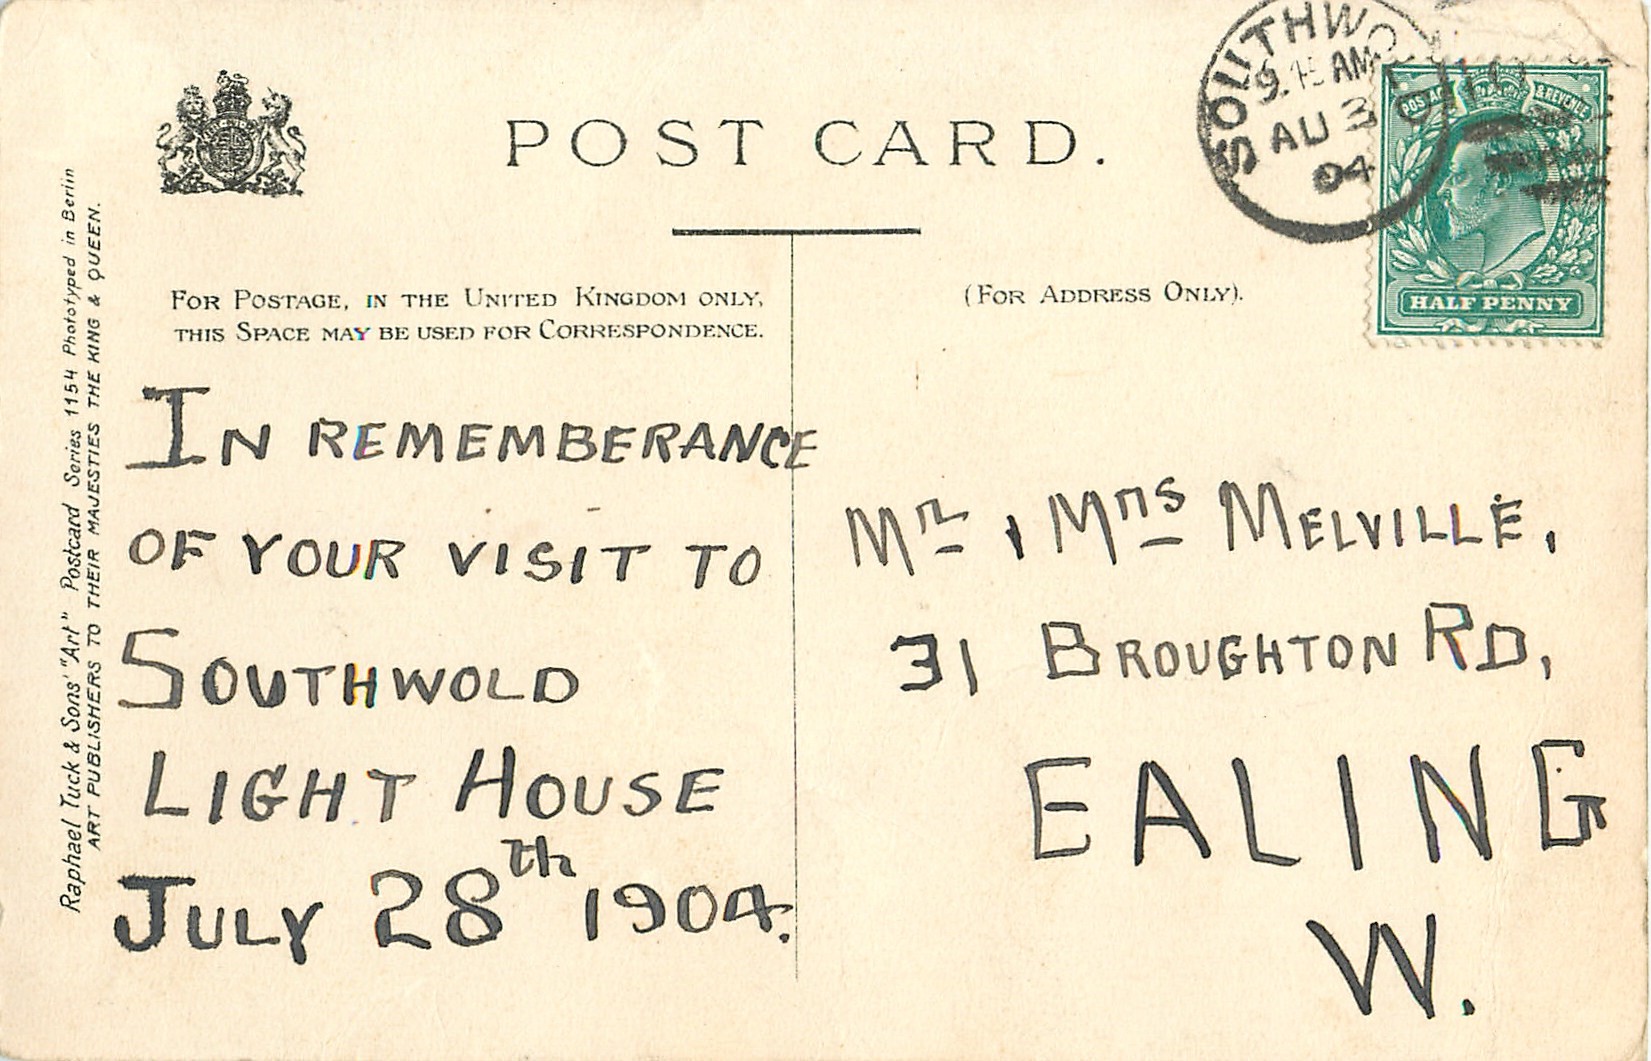 POST CARD.
FOR POSTAGE, IN THE UNITED KINGDOM ONLY,
THIS SPACE MAY BE USED FOR CORRESPONDENCE.
(FOR ADDRESS ONLY).
SOUTHWOLD
9.15 AM
AU 3
04
POSTAGE & REVENUE
HALF PENNY
IN REMEMBERANCE
OF YOUR VISIT TO
SOUTHWOLD
LIGHT HOUSE
JULY 28th 1904.
Mr & Mrs MELVILLE,
31 BROUGHTON RD,
EALING
W.
Raphael Tuck & Sons' "Art" Postcard Series 1154 Phototyped in Berlin
ART PUBLISHERS TO THEIR MAJESTIES THE KING & QUEEN.